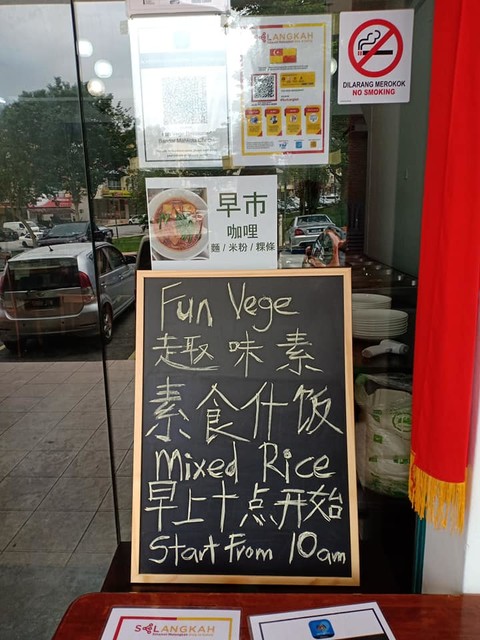 SELANGKAH
DILARANG MEROKOK
NO SMOKING
早市
咖哩
麵/米粉/粿條
Fun Vege
趣味素
素食什饭
Mixed Rice
早上十点开始
Start From 10am
SELANGKAH